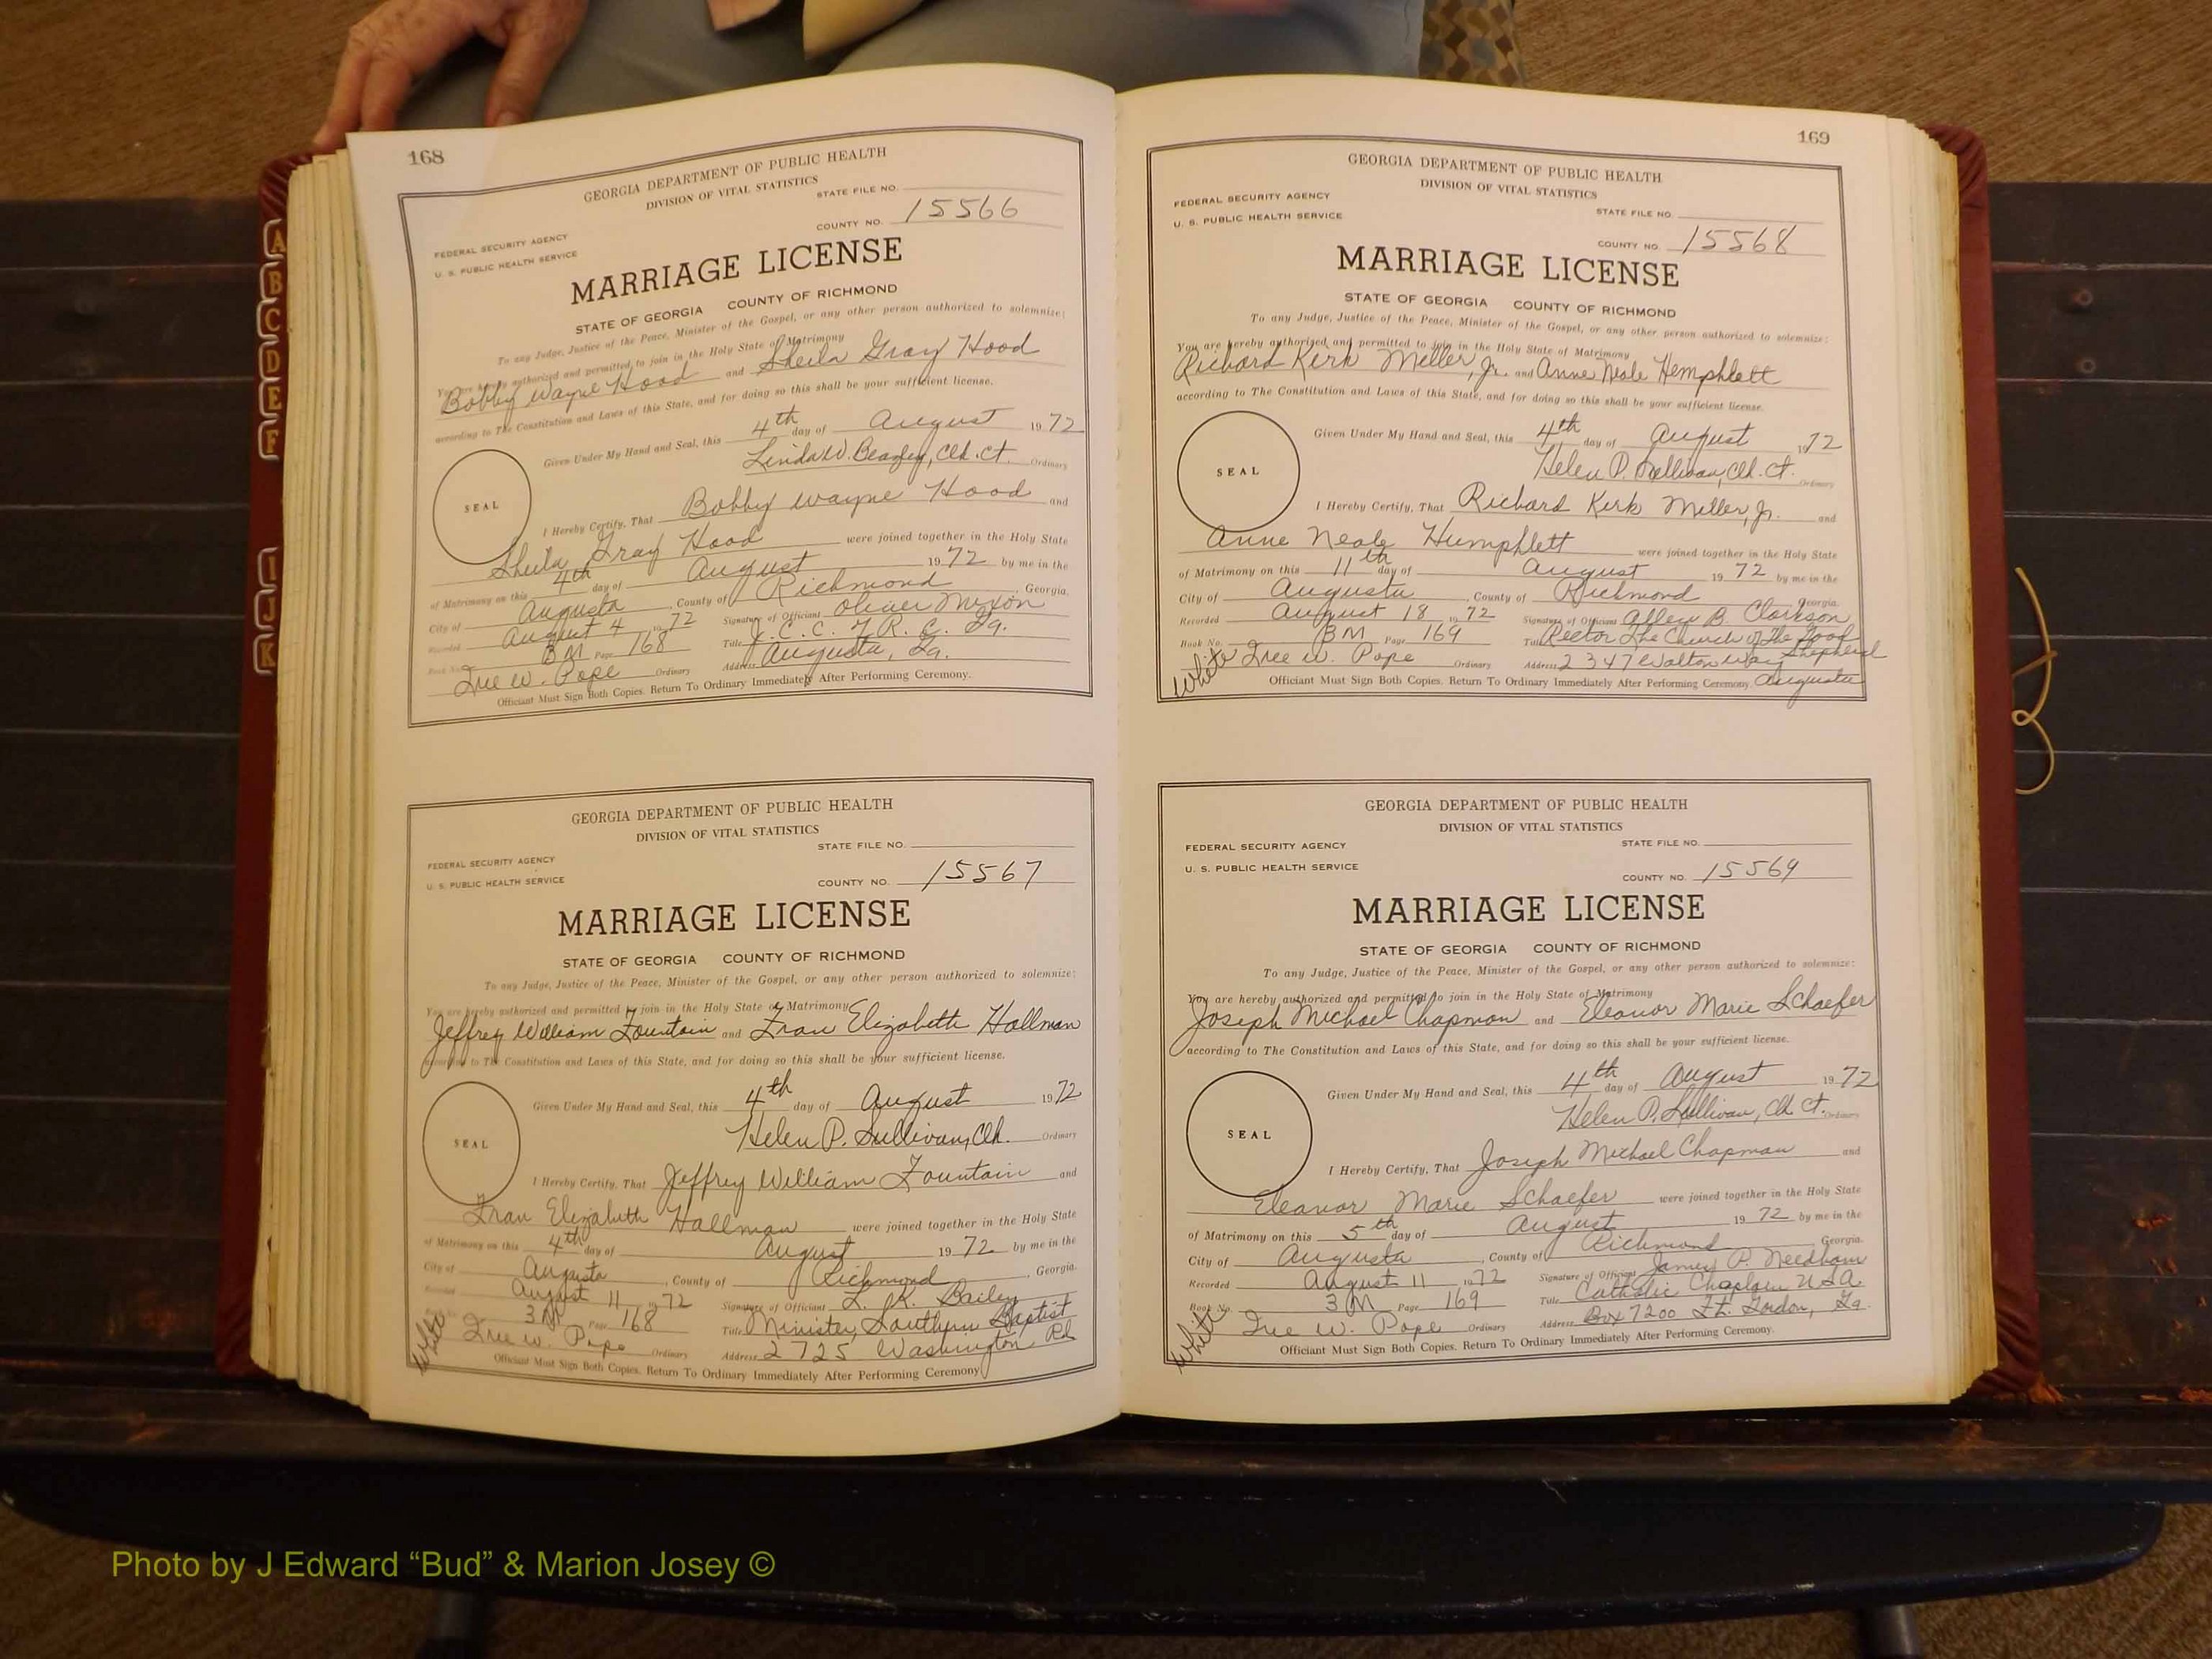 168
GEORGIA DEPARTMENT OF PUBLIC HEALTH
DIVISION OF VITAL STATISTICS
STATE FILE NO.
COUNTY NO. 15566
FEDERAL SECURITY AGENCY
U. S. PUBLIC HEALTH SERVICE
MARRIAGE LICENSE
STATE OF GEORGIA COUNTY OF RICHMOND
To any Judge, Justice of the Peace, Minister of the Gospel, or any other person authorized to solemnize:
You are hereby authorized and permitted to join in the Holy State of Matrimony
Bobby Wayne Hood and Sheila Gray Hood
according to The Constitution and Laws of this State, and for doing so this shall be your sufficient license.
Given Under My Hand and Seal, this 4th day of August 1972
Linda W. Beazley, Clk. Ct. Ordinary
SEAL
I Hereby Certify, That Bobby Wayne Hood and
Sheila Gray Hood were joined together in the Holy State
of Matrimony on this 4th day of August 1972 by me in the
City of Augusta, County of Richmond, Georgia.
Recorded August 4 1972 Signature of Officiant Oliver Mixon
Book No. 3M Page 168 Title J.C.C. & R.C. Ga.
Address Augusta, Ga.
Inee W. Pope Ordinary
Officiant Must Sign Both Copies. Return To Ordinary Immediately After Performing Ceremony.
GEORGIA DEPARTMENT OF PUBLIC HEALTH
DIVISION OF VITAL STATISTICS
STATE FILE NO.
FEDERAL SECURITY AGENCY
U. S. PUBLIC HEALTH SERVICE
COUNTY NO. 15567
MARRIAGE LICENSE
STATE OF GEORGIA COUNTY OF RICHMOND
To any Judge, Justice of the Peace, Minister of the Gospel, or any other person authorized to solemnize:
You are hereby authorized and permitted to join in the Holy State of Matrimony
Jeffrey William Fountain and Fran Elizabeth Hallman
according to The Constitution and Laws of this State, and for doing so this shall be your sufficient license.
Given Under My Hand and Seal, this 4th day of August 1972
Helen P. Sullivan, Clk. Ordinary
SEAL
I Hereby Certify, That Jeffrey William Fountain and
Fran Elizabeth Hallman were joined together in the Holy State
of Matrimony on this 4th day of August 1972 by me in the
City of Augusta, County of Richmond, Georgia.
Recorded August 11 1972 Signature of Officiant L. K. Bailey
Book No. 3M Page 168 Title Minister, Southern Baptist
White Inee W. Pope Ordinary Address 2725 Washington Rd
Officiant Must Sign Both Copies. Return To Ordinary Immediately After Performing Ceremony
169
GEORGIA DEPARTMENT OF PUBLIC HEALTH
DIVISION OF VITAL STATISTICS
FEDERAL SECURITY AGENCY
U. S. PUBLIC HEALTH SERVICE
STATE FILE NO.
COUNTY NO. 15568
MARRIAGE LICENSE
STATE OF GEORGIA COUNTY OF RICHMOND
To any Judge, Justice of the Peace, Minister of the Gospel, or any other person authorized to solemnize:
You are hereby authorized and permitted to join in the Holy State of Matrimony
Richard Kirk Miller, Jr. and Anne Neale Hemphlett
according to The Constitution and Laws of this State, and for doing so this shall be your sufficient license.
Given Under My Hand and Seal, this 4th day of August 1972
Helen P. Sullivan, Clk. Ct. Ordinary
SEAL
I Hereby Certify, That Richard Kirk Miller, Jr. and
Anne Neale Humphlett were joined together in the Holy State
of Matrimony on this 11th day of August 1972 by me in the
City of Augusta, County of Richmond Georgia.
Recorded August 18 1972 Signature of Officiant Allen B. Clarkson
Book No. 3M Page 169 Title Rector The Church of the Good Shepherd
White Inee W. Pope Ordinary Address 2347 Walton Way
Officiant Must Sign Both Copies. Return To Ordinary Immediately After Performing Ceremony. Augusta
GEORGIA DEPARTMENT OF PUBLIC HEALTH
DIVISION OF VITAL STATISTICS
STATE FILE NO.
FEDERAL SECURITY AGENCY
U. S. PUBLIC HEALTH SERVICE
COUNTY NO. 15569
MARRIAGE LICENSE
STATE OF GEORGIA COUNTY OF RICHMOND
To any Judge, Justice of the Peace, Minister of the Gospel, or any other person authorized to solemnize:
You are hereby authorized and permitted to join in the Holy State of Matrimony
Joseph Michael Chapman and Eleanor Marie Schaefer
according to The Constitution and Laws of this State, and for doing so this shall be your sufficient license.
Given Under My Hand and Seal, this 4th day of August 1972
Helen P. Sullivan, Clk Ct. Ordinary
SEAL
I Hereby Certify, That Joseph Michael Chapman and
Eleanor Marie Schaefer were joined together in the Holy State
of Matrimony on this 5th day of August 1972 by me in the
City of Augusta, County of Richmond Georgia.
Recorded August 11 1972 Signature of Officiant James P. Needham
Book No. 3M Page 169 Title Catholic Chaplain USA
White Inee W. Pope Ordinary Address Box 7200 Ft. Gordon, Ga.
Officiant Must Sign Both Copies. Return To Ordinary Immediately After Performing Ceremony.
A
B
C
D
E
F
I
J
K
Photo by J Edward “Bud” & Marion Josey ©